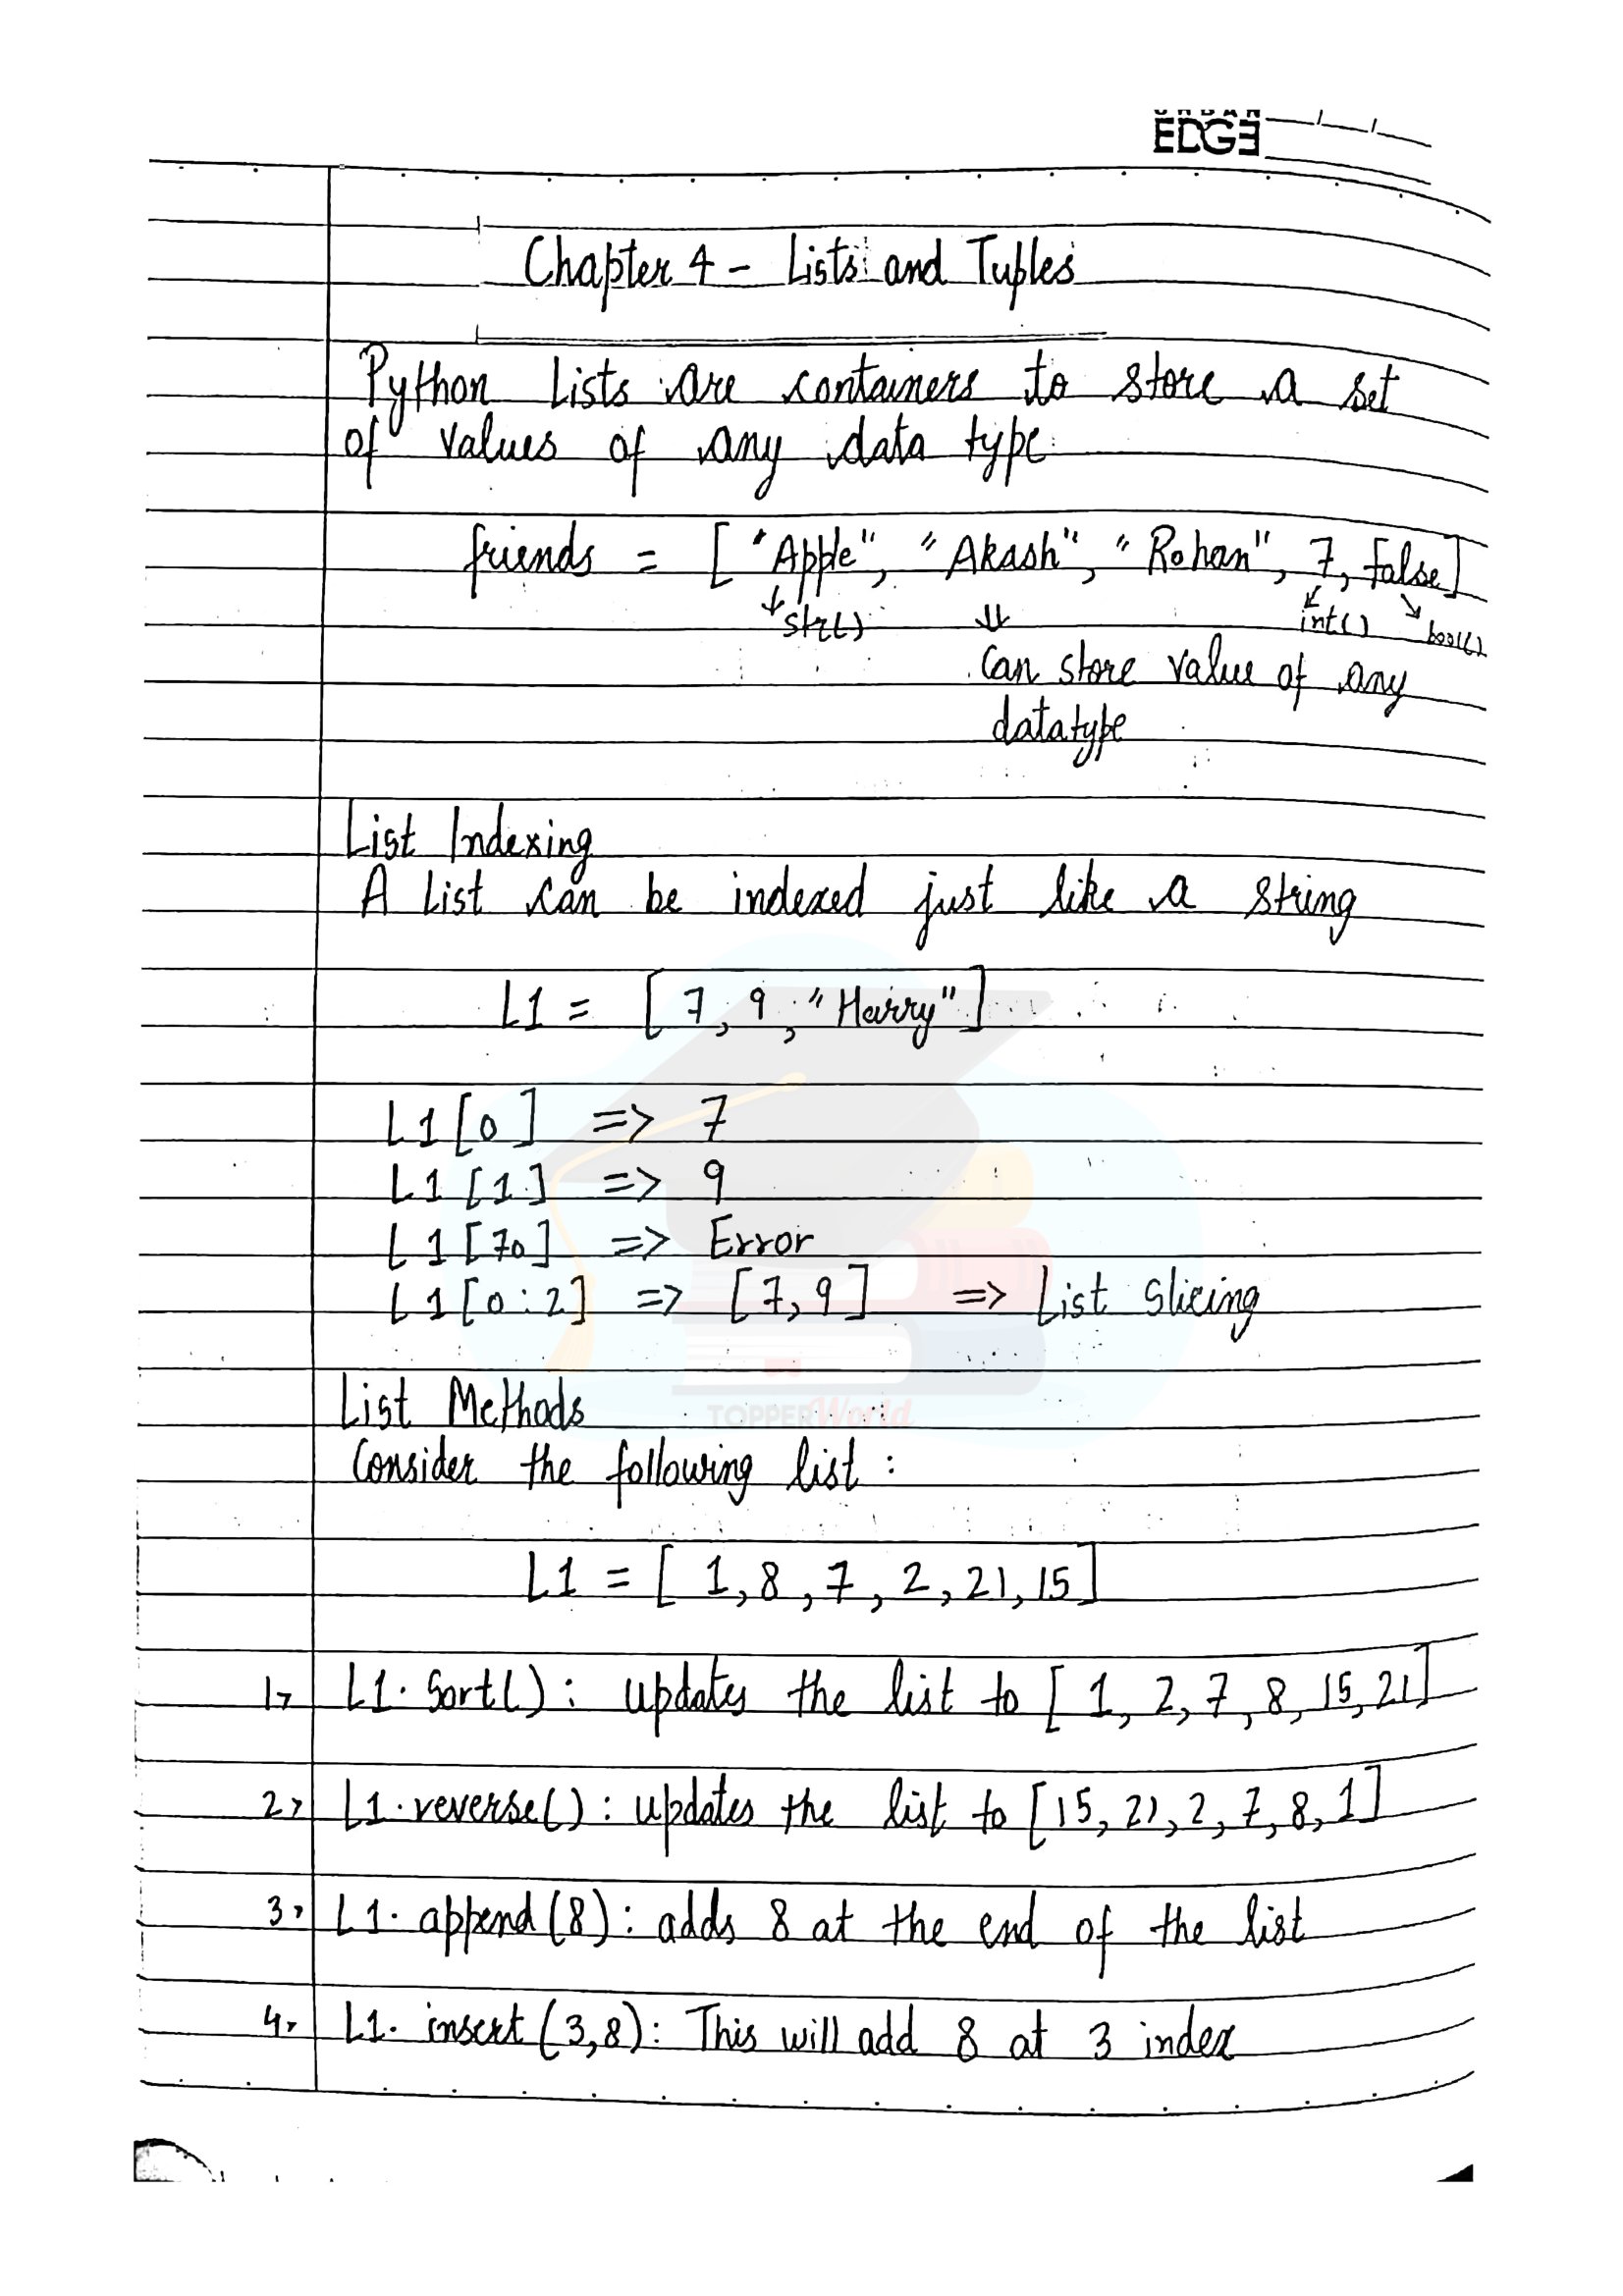 URBAN
EDGE
Chapter 4 - Lists and Tuples
Python Lists are containers to store a set
of values of any data type
friends = [ "Apple", "Akash", "Rohan", 7, false]
↓ str() ⇓ ↙ int() ↘ bool()
Can store value of any
datatype
List Indexing
A List can be indexed just like a string
L1 = [ 7, 9, "Harry" ]
L1[0] => 7
L1 [1] => 9
L1 [70] => Error
L1 [0:2] => [7,9] => List Slicing
List Methods
TOPPERWorld
Consider the following list :
L1 = [ 1, 8, 7, 2, 21, 15]
1> L1. Sort() : updates the list to [ 1, 2, 7, 8, 15, 21]
2> L1. reverse() : updates the list to [15, 21, 2, 7, 8, 1]
3> L1. append (8) : adds 8 at the end of the list
4> L1. insert (3,8) : This will add 8 at 3 index